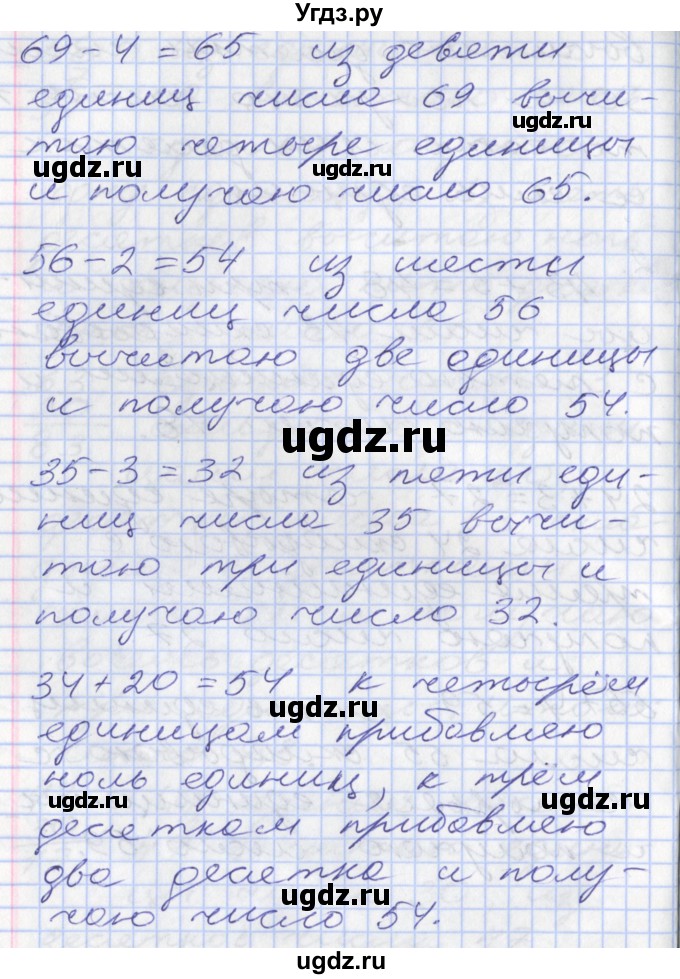 Угдз.ру
69 - 4 = 65 из девяти
единиц числа 69 вычи-
ugdz.ru
таю четыре единицы
ugdz.ru
ugdz.ru
и получаю число 65.
56 - 2 = 54 из шести
единиц числа 56
вычитаю две единицы
и получаю число 54.
ugdz.ru
35 - 3 = 32 из пяти еди-
ниц числа 35 вычи-
таю три единицы и
получаю число 32.
34 + 20 = 54 к четырём
ugdz.ru
единицам прибавляю
ноль единиц, к трём
ugdz.ru
ugdz.ru
десяткам прибавляю
два десятка и полу-
ugdz.ru
чаю число 54.
ugdz.ru